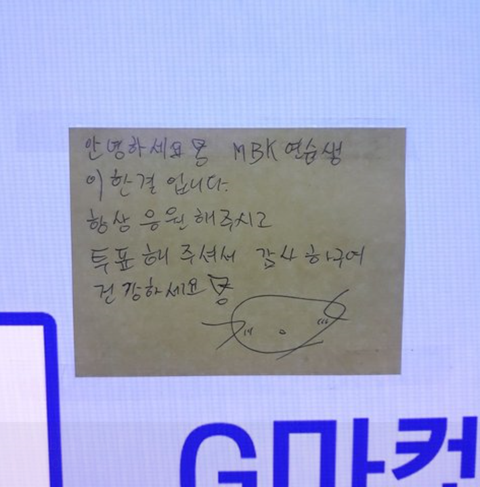 안녕하세요용 MBK 연습생
이한결입니다.
항상 응원해주시고
투표해 주셔서 감사하구여
건강하세요용
G마켓